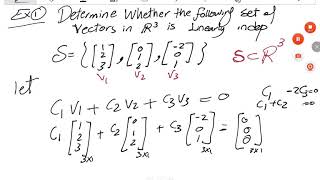 Ex① Determine Whether the following set of
Vectors in R³ is Linearly indep
S = { [1 2 3], [0 1 2], [-2 0 1] } S⊂R³
V₁ V₂ V₃
let
C₁V₁ + C₂V₂ + C₃V₃ = 0
C₁ -2C₃=0
C₁+C₂ =0
C₁ [1 2 3]3x1 + C₂ [0 1 2]3x1 + C₃ [-2 0 1]3x1 = [0 0 0]3x1